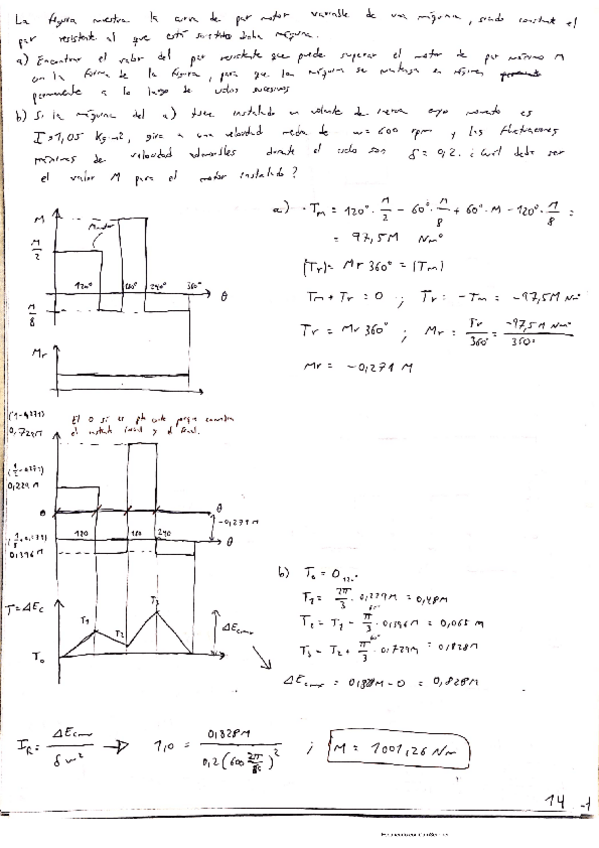 La figura muestra la curva de par motor variable de una máquina, siendo constante el
par resistente al que está sometida dicha máquina.
a) Encontrar el valor del par resistente que puede superar el motor de par máximo M
con la forma de la figura, para que la máquina se mantenga en régimen
permanente a lo largo de ciclos sucesivos
b) Si la máquina del a) tiene instalado un volante de inercia cuyo momento es
I = 1,05 Kg·m², gira a una velocidad media de w = 600 rpm y las fluctuaciones
máximas de velocidad admisibles durante el ciclo son δ = 0,2. ¿Cuál debe ser
el valor M para el motor instalado?
a) · Tm = 120° · M/2 − 60° · M/8 + 60° · M − 120° · M/8 =
= 97,5M Nm°
(Tr) = Mr 360° = (Tm)
Tm + Tr = 0 ; Tr = −Tm = −97,5M Nm°
Tr = Mr 360° ; Mr = Tr/360° = −97,5M Nm°/360°
Mr = −0,271 M
M
M/2
Mmotor
120° 180° 240° 360° θ
M/8
Mr
El 0 si es pto corte porque consideramos
el instante inicial y el final.
(1-0,271)
0,729M
(1/2-0,271)
0,229M
0
θ
-0,271M
120 180 240 θ
0,396M
T=ΔEc
T1 T2 T3
ΔEcmax
T0
b) T0 = 0
T1 = 2π/3 · 0,229M = 0,48M
T2 = T1 − π/3 · 0,396M = 0,065 M
T3 = T2 + π/3 · 0,729M = 0,828M
ΔEcmax = 0,828M − 0 = 0,828M
IR = ΔEcmax / δ w² → 1,0 = 0,828M / 0,2(600 2π/60)² ; M = 1001,26 Nm
14